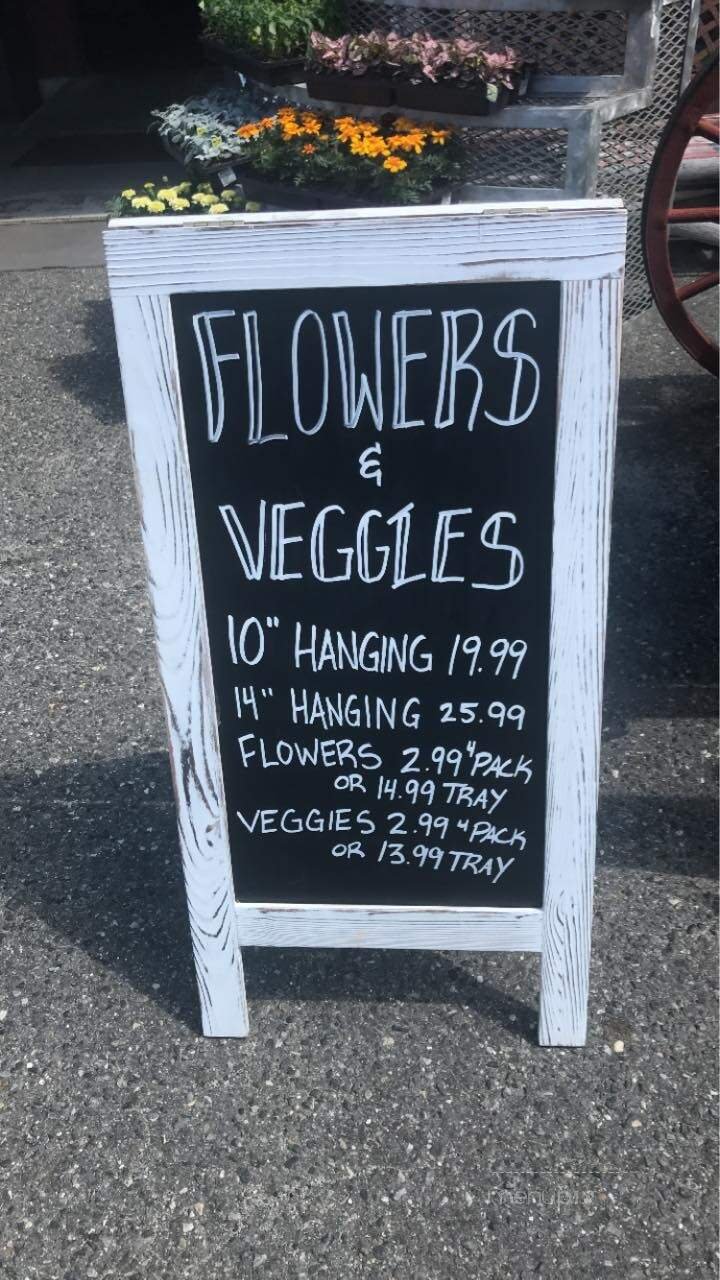 FLOWERS
&
VEGGIES
10" HANGING 19.99
14" HANGING 25.99
FLOWERS 2.99 4PACK
OR 14.99 TRAY
VEGGIES 2.99 4PACK
OR 13.99 TRAY